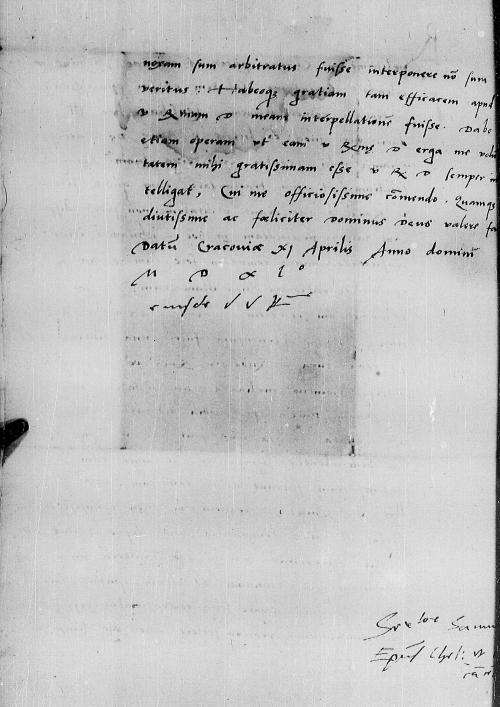 nostram sum arbitratus fuisse interponere nõ sum
veritus :: Habeoqȝ gratiam tam efficacem apud
v Rmum D meam interpellationẽ fuisse. Dabo
etiam operam vt eam v Rms D erga me volũ
tatem mihi gratissimam esse v R D semper in
telligat, Cui me officiosissime cõmendo. Quamqȝ
diutissime ac fœliciter Dominus Deus valere fa
Datũ Cracoviæ XI Aprilis Anno dominj
M D XL°
eiusdẽ V V R
Ser
Epũs Chel: vt